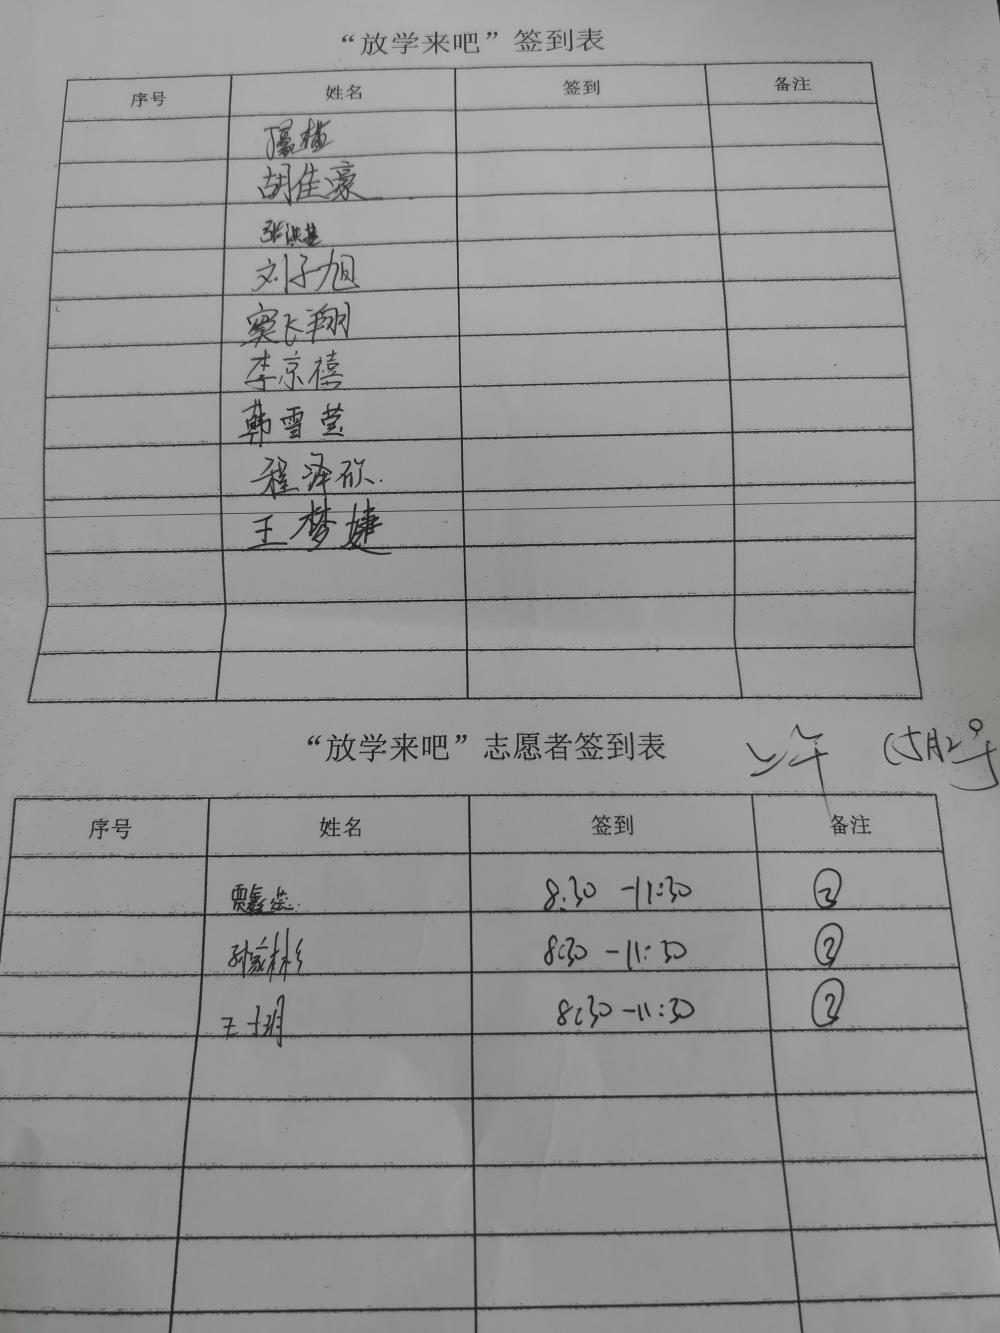 “放学来吧”签到表
序号 姓名 签到 备注
胡佳豪
刘子旭
窦长翔
李京禧
韩雪莹
程泽欣
王梦婕
“放学来吧”志愿者签到表 上午
序号 姓名 签到 备注
8:30 -11:30 ③
孙家彬 8:30 -11:30 ③
8:30 -11:30 ③